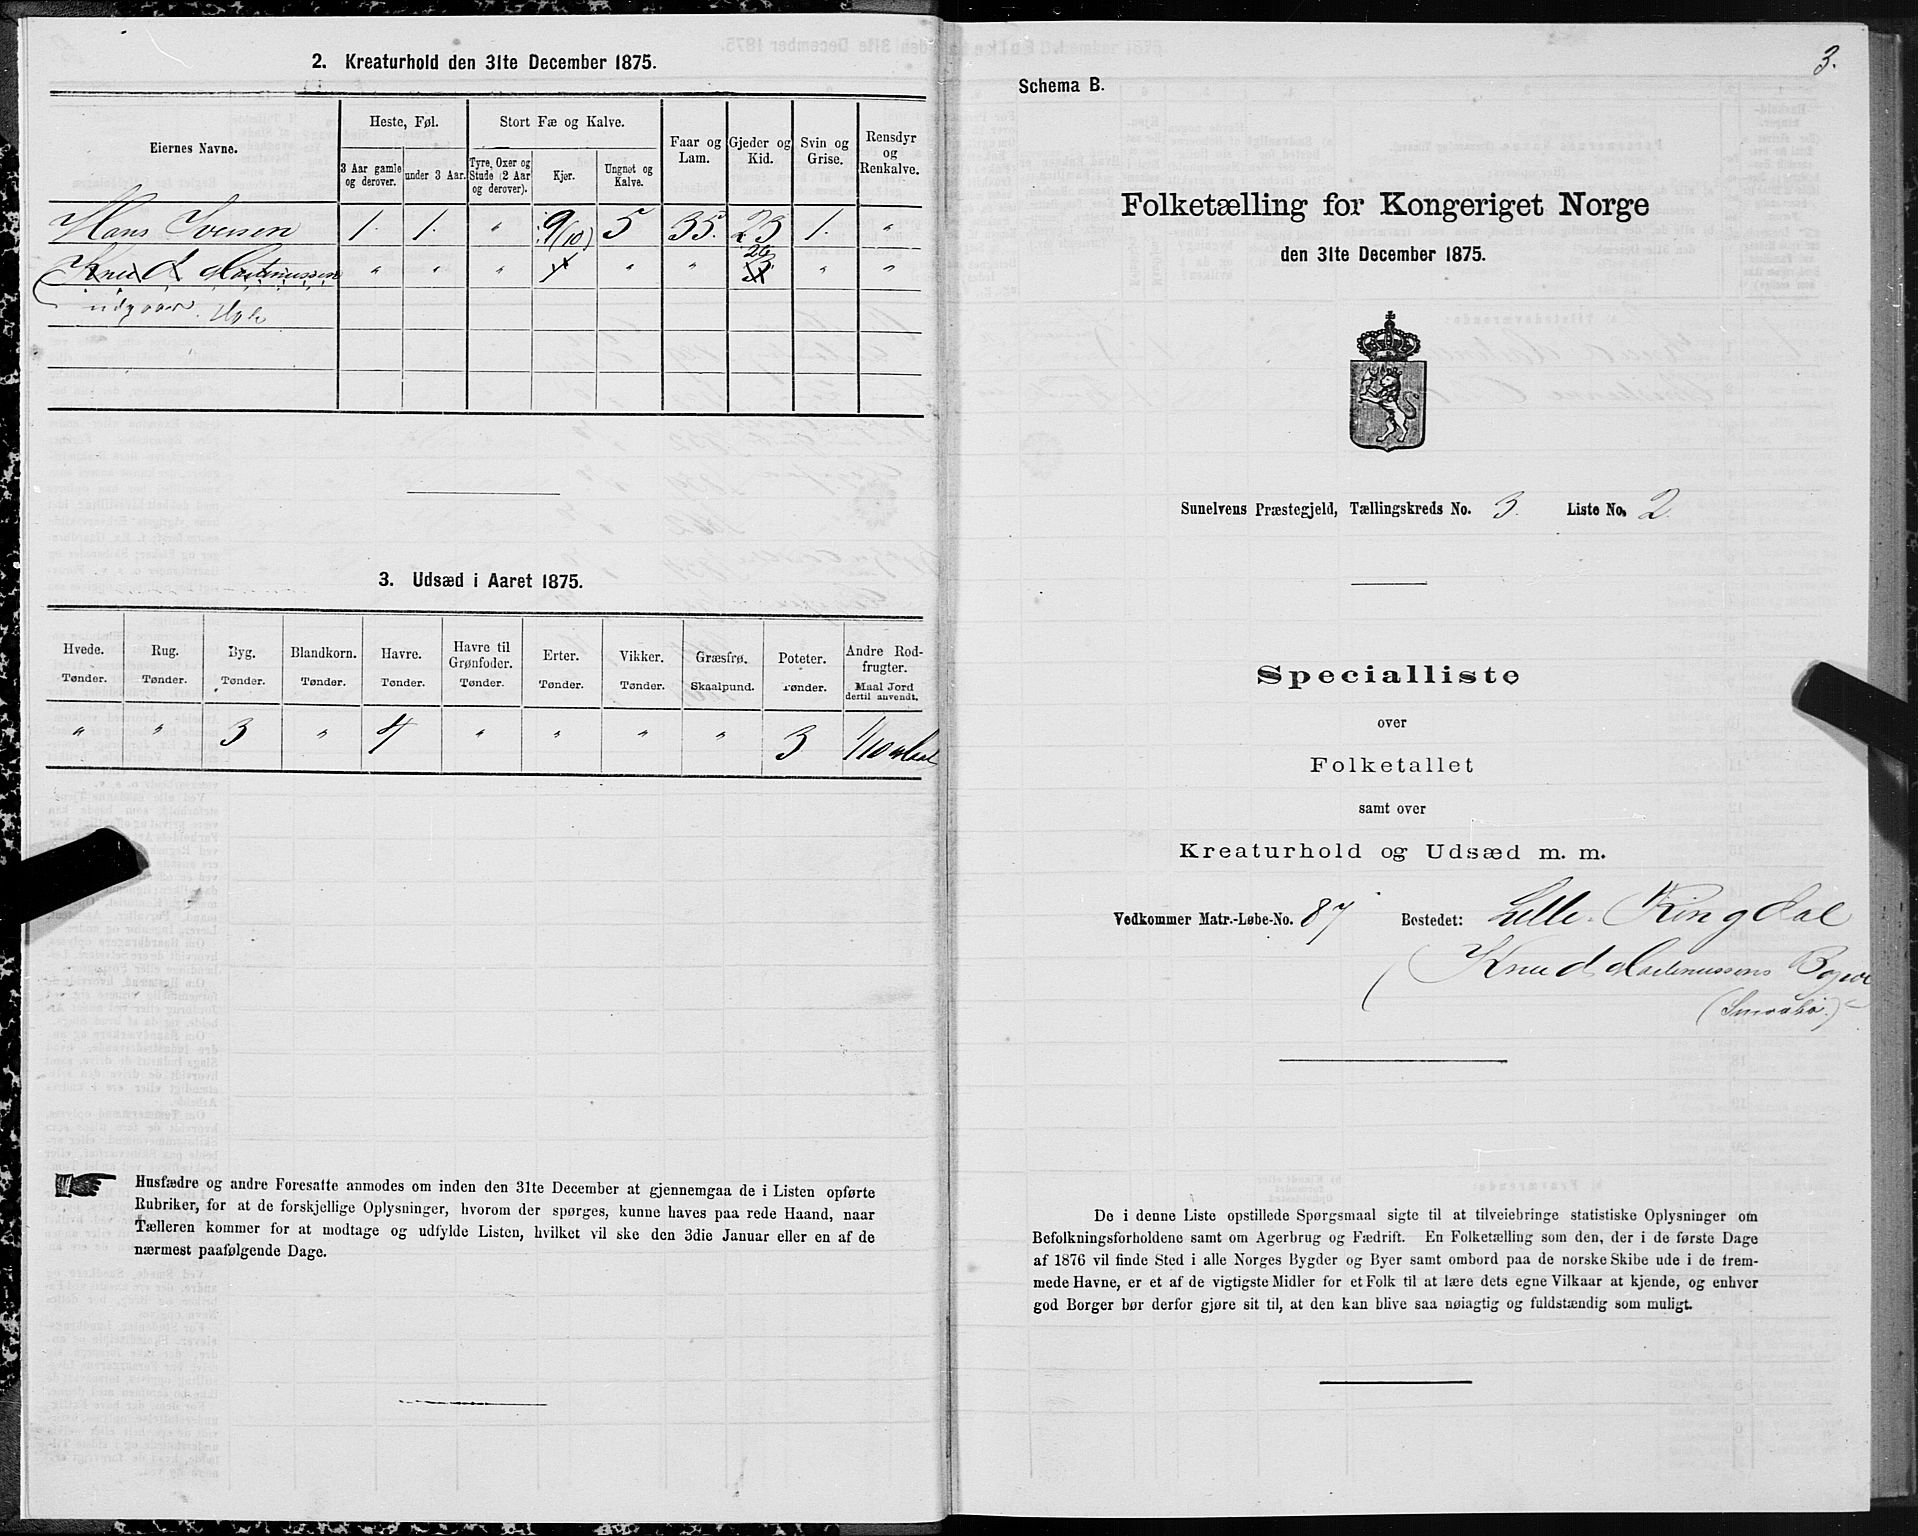 2. Kreaturhold den 31te December 1875.
Eiernes Navne.
Heste, Føl.
Stort Fæ og Kalve.
Faar og Lam.
Gjeder og Kid.
Svin og Grise.
Rensdyr og Renkalve.
3 Aar gamle og derover.
under 3 Aar.
Tyre, Oxer og Stude (2 Aar og derover).
Kjør.
Ungnøt og Kalve.
Hans Iversen 1. 1. " 9 (10) 5 35. 23 1. "
26
Knud Martinussen " " " 1 " " 3 " "
udgaar.
3. Udsæd i Aaret 1875.
Hvede. Rug. Byg. Blandkorn. Havre. Havre til Grønfoder. Erter. Vikker. Græsfrø. Poteter. Andre Rodfrugter.
Tønder. Tønder. Tønder. Tønder. Tønder. Tønder. Tønder. Tønder. Skaalpund. Tønder. Maal Jord dertil anvendt.
" " 3 " 4 " " " " 3 1/10 Maal
Husfædre og andre Foresatte anmodes om inden den 31te December at gjennemgaa de i Listen opførte
Rubriker, for at de forskjellige Oplysninger, hvorom der spørges, kunne haves paa rede Haand, naar
Tælleren kommer for at modtage og udfylde Listen, hvilket vil ske den 3die Januar eller en af de
nærmest paafølgende Dage.
3.
Schema B.
Folketælling for Kongeriget Norge
den 31te December 1875.
Sunelvens Præstegjeld, Tællingskreds No. 3. Liste No. 2.
Specialliste
over
Folketallet
samt over
Kreaturhold og Udsæd m. m.
Vedkommer Matr.-Løbe-No. 87 Bostedet: Lille-Ringdal
(Knud Martinussens
De i denne Liste opstillede Spørgsmaal sigte til at tilveiebringe statistiske Oplysninger om
Befolkningsforholdene samt om Agerbrug og Fædrift. En Folketælling som den, der i de første Dage
af 1876 vil finde Sted i alle Norges Bygder og Byer samt ombord paa de norske Skibe ude i de frem-
mede Havne, er et af de vigtigste Midler for et Folk til at lære dets egne Vilkaar at kjende, og enhver
god Borger bør derfor gjøre sit til, at den kan blive saa nøiagtig og fuldstændig som muligt.